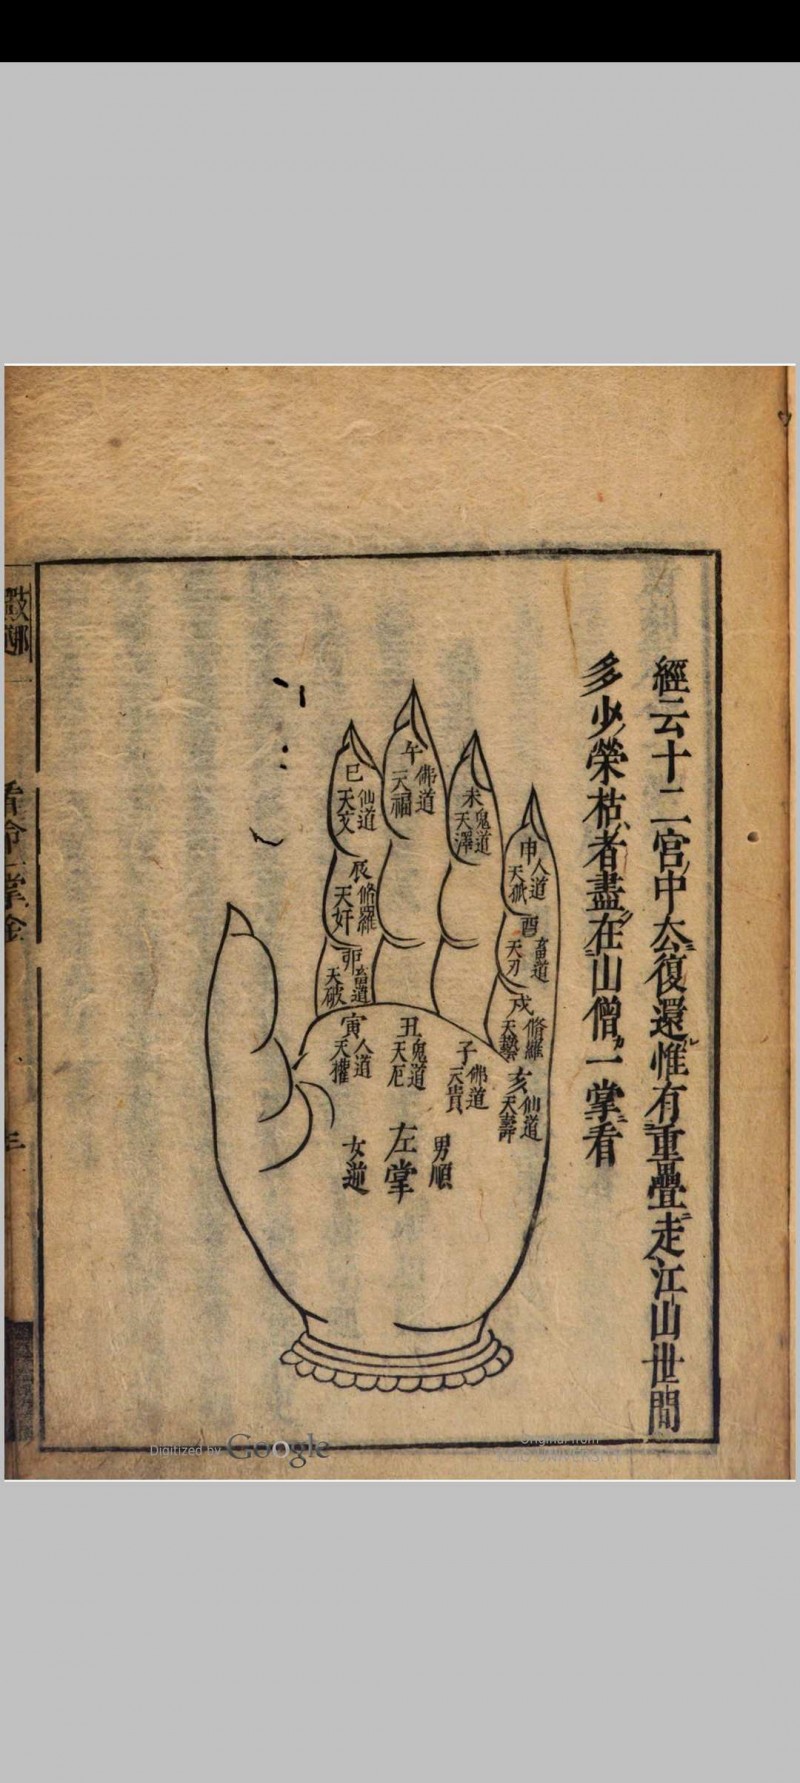 經云十二宮中去復還惟有重疊走江山世間
多少榮枯者盡在山僧一掌看
巳
仙道
天文
午
佛道
天福
未
鬼道
天澤
申
人道
天
辰
脩羅
天奸
酉
畜道
天刃
卯
畜道
天破
戌
脩羅
天藝
寅
人道
天權
丑
鬼道
天厄
子
佛道
天貴
亥
仙道
天壽
男順
左掌
女逆
看命一掌金
三
Digitized by Google
Original from